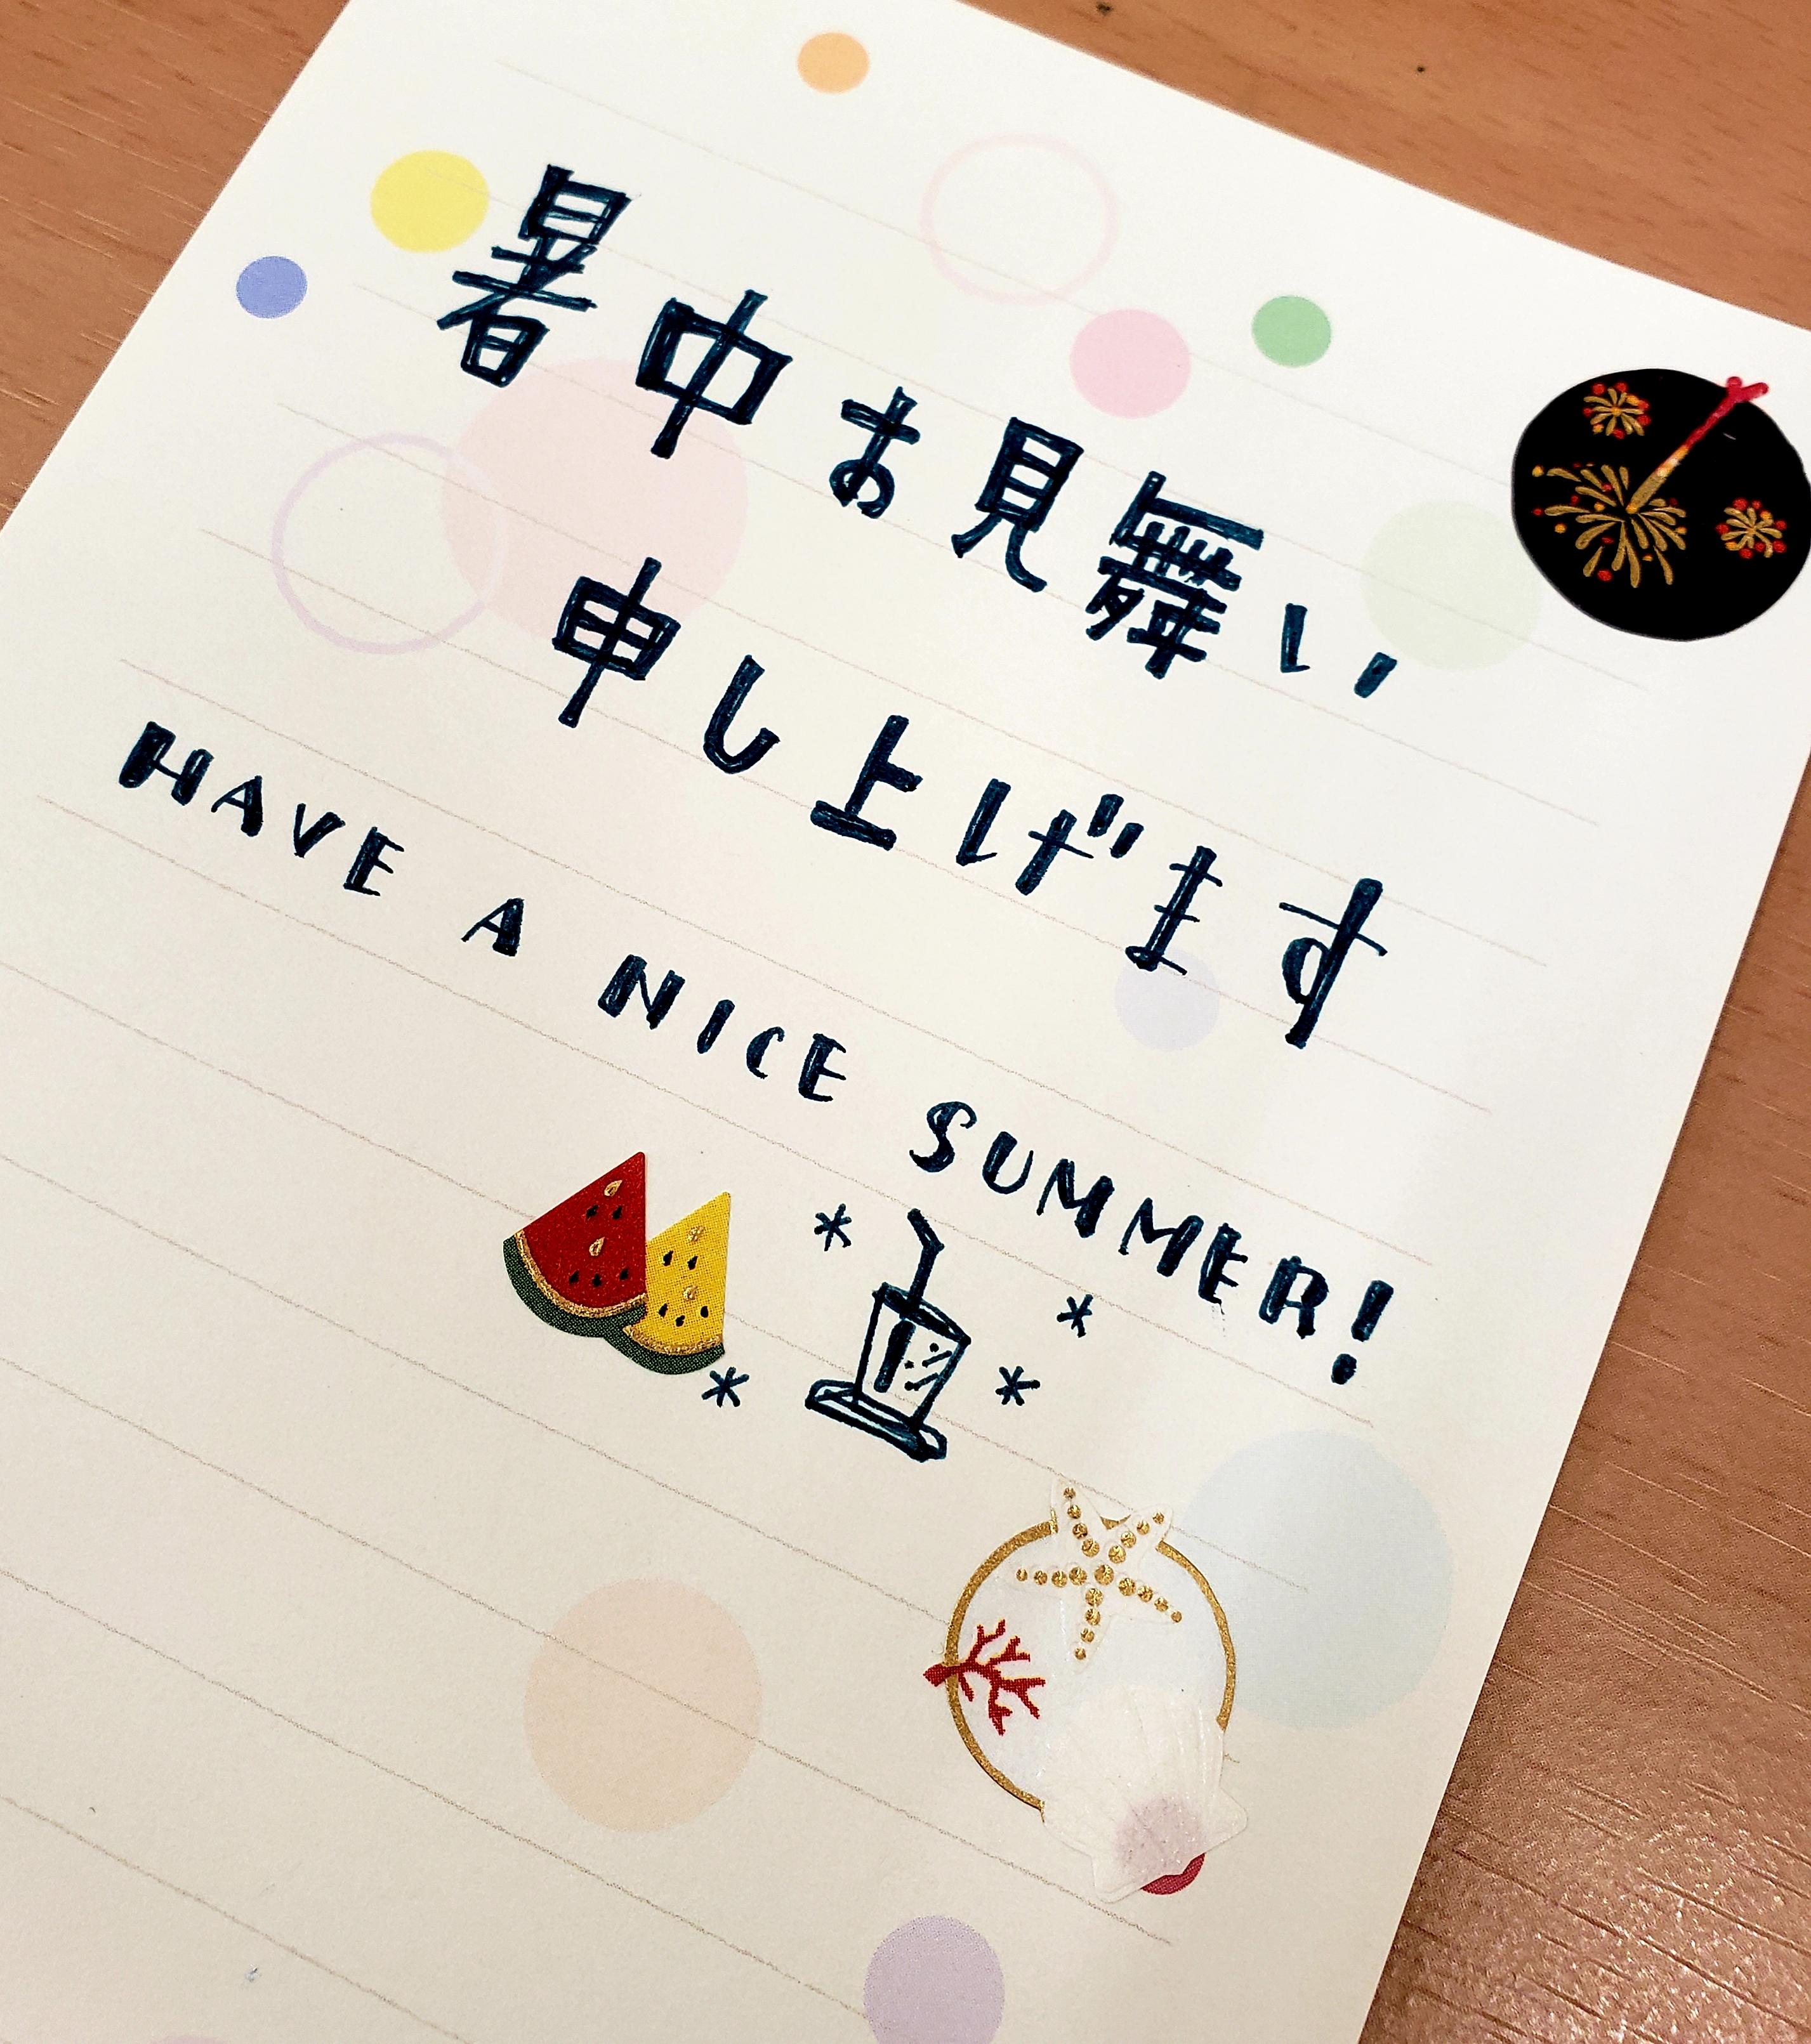 暑中お見舞い
申し上げます
HAVE A NICE SUMMER!